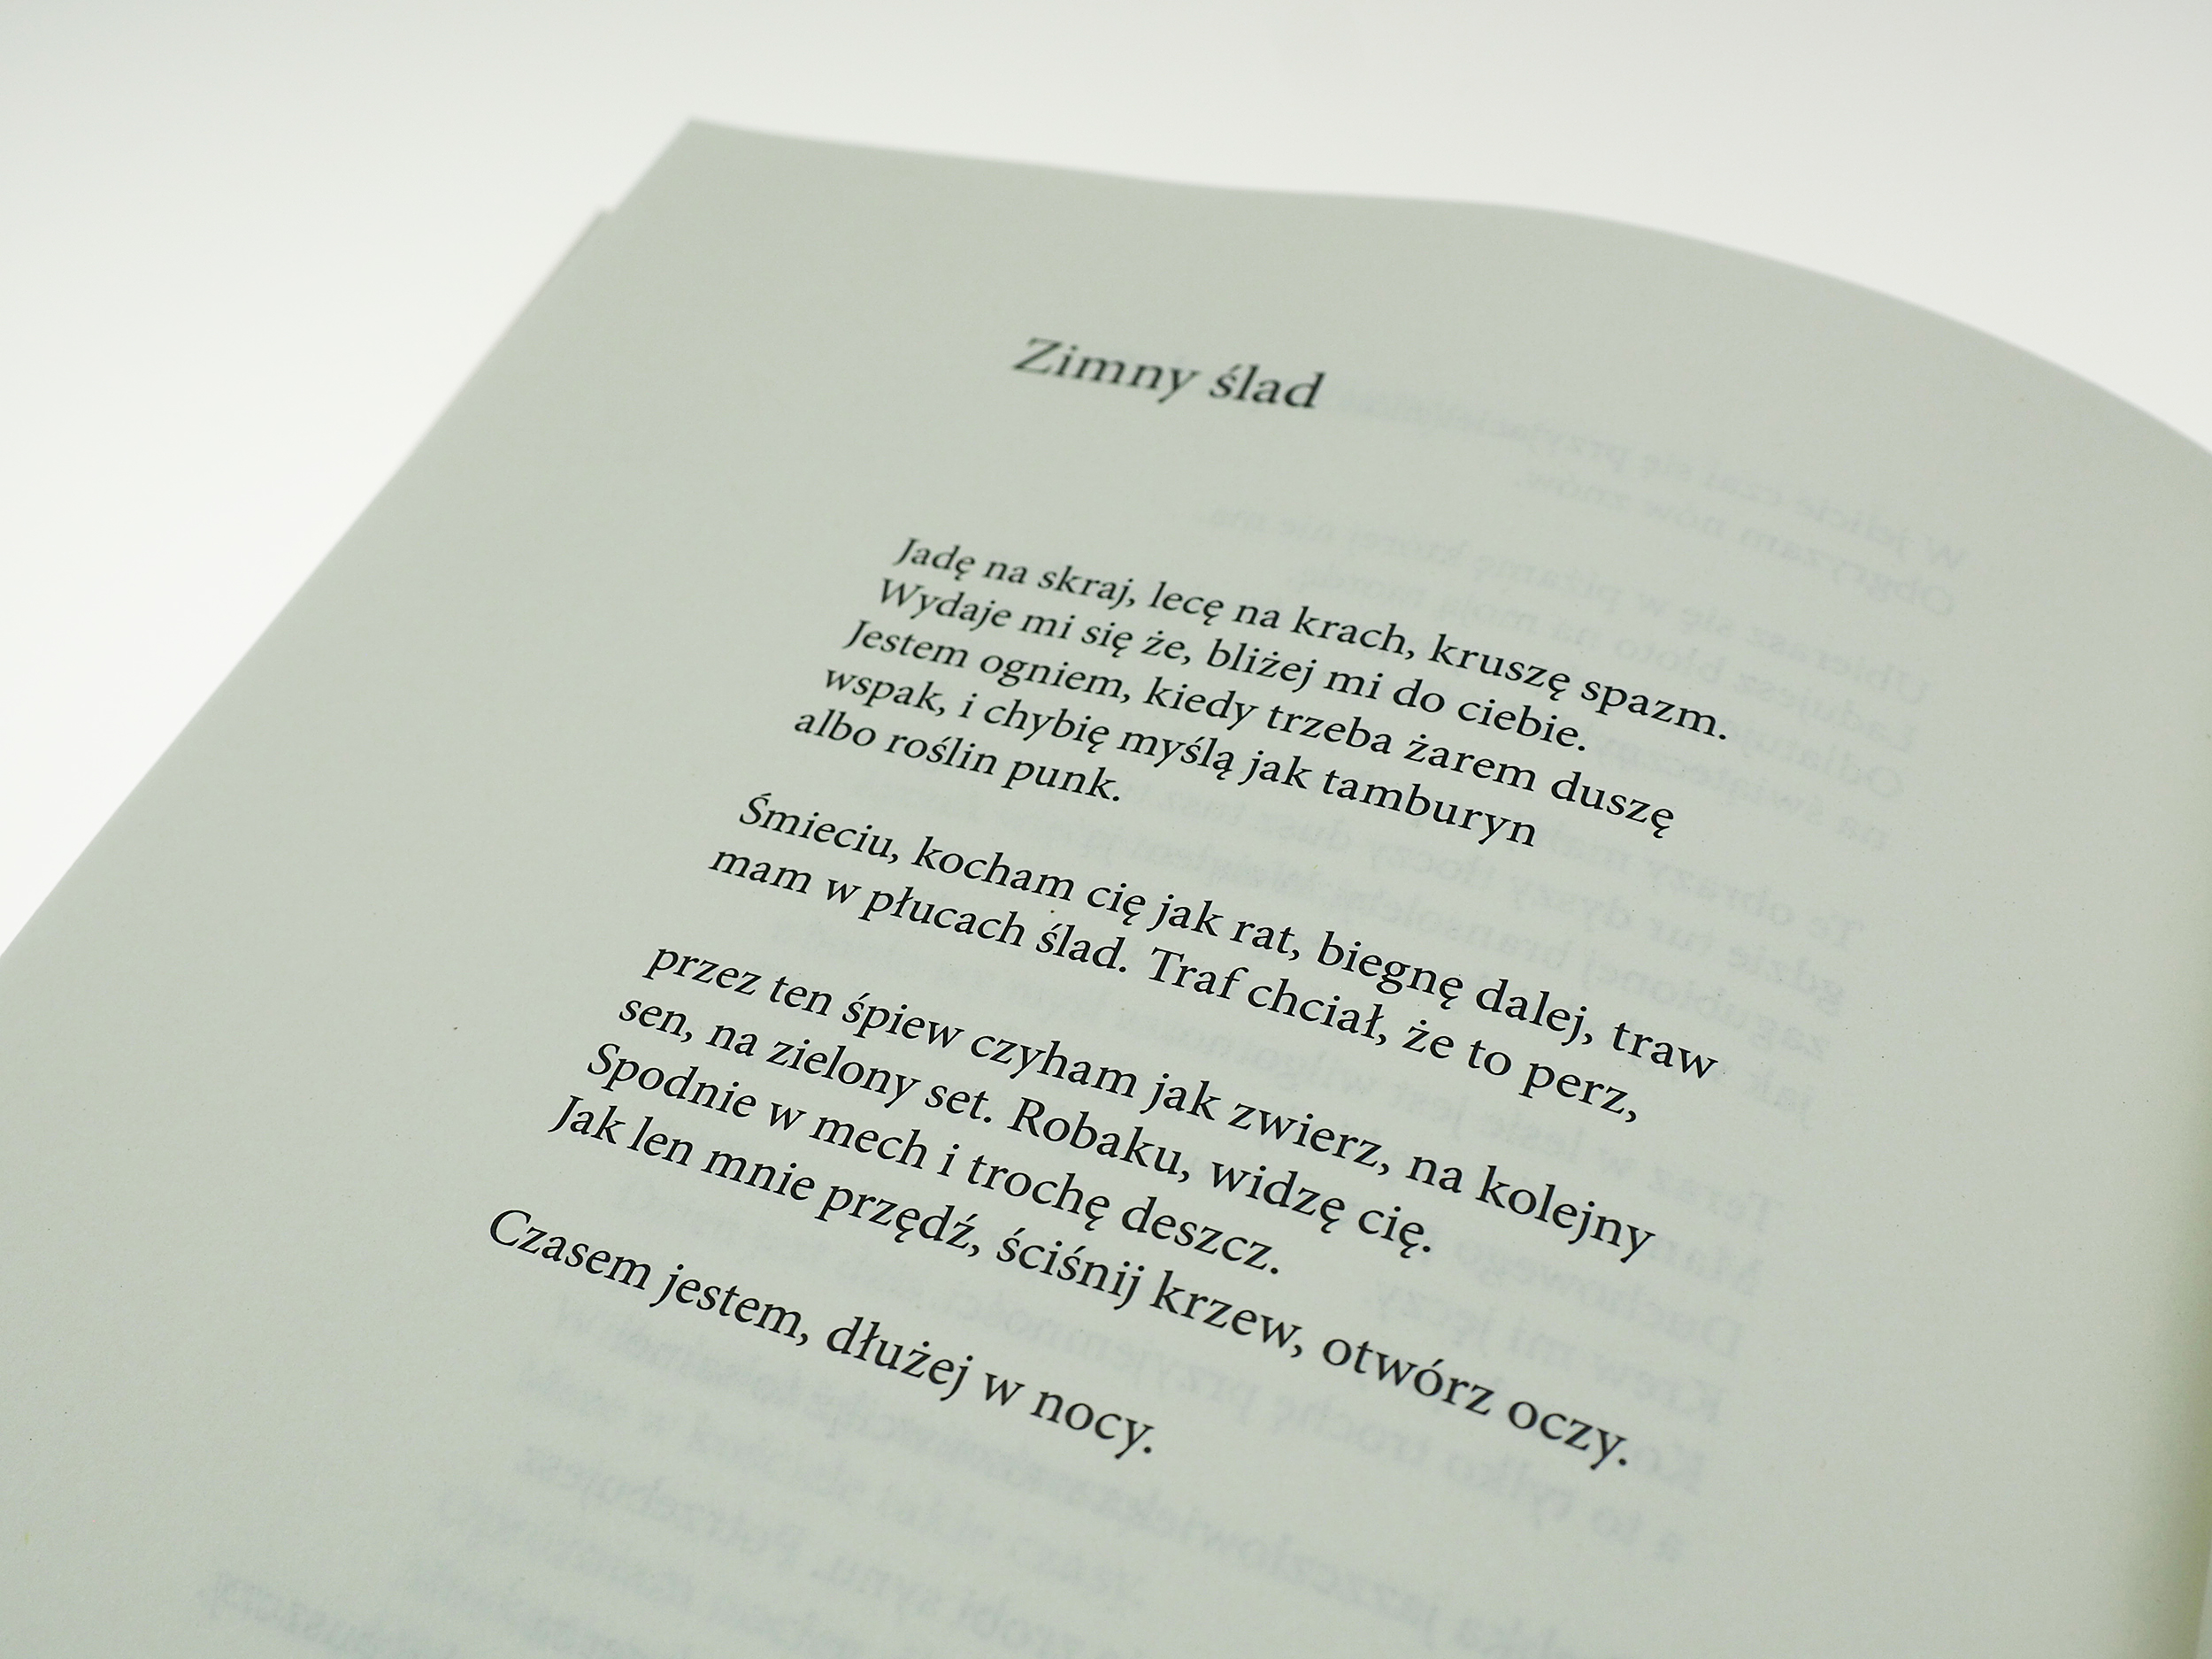 Zimny ślad
Jadę na skraj, lecę na krach, kruszę spazm.
Wydaje mi się że, bliżej mi do ciebie.
Jestem ogniem, kiedy trzeba żarem duszę
wspak, i chybię myślą jak tamburyn
albo roślin punk.
Śmieciu, kocham cię jak rat, biegnę dalej, traw
mam w płucach ślad. Traf chciał, że to perz,
przez ten śpiew czyham jak zwierz, na kolejny
sen, na zielony set. Robaku, widzę cię.
Spodnie w mech i trochę deszcz.
Jak len mnie przędź, ściśnij krzew, otwórz oczy.
Czasem jestem, dłużej w nocy.